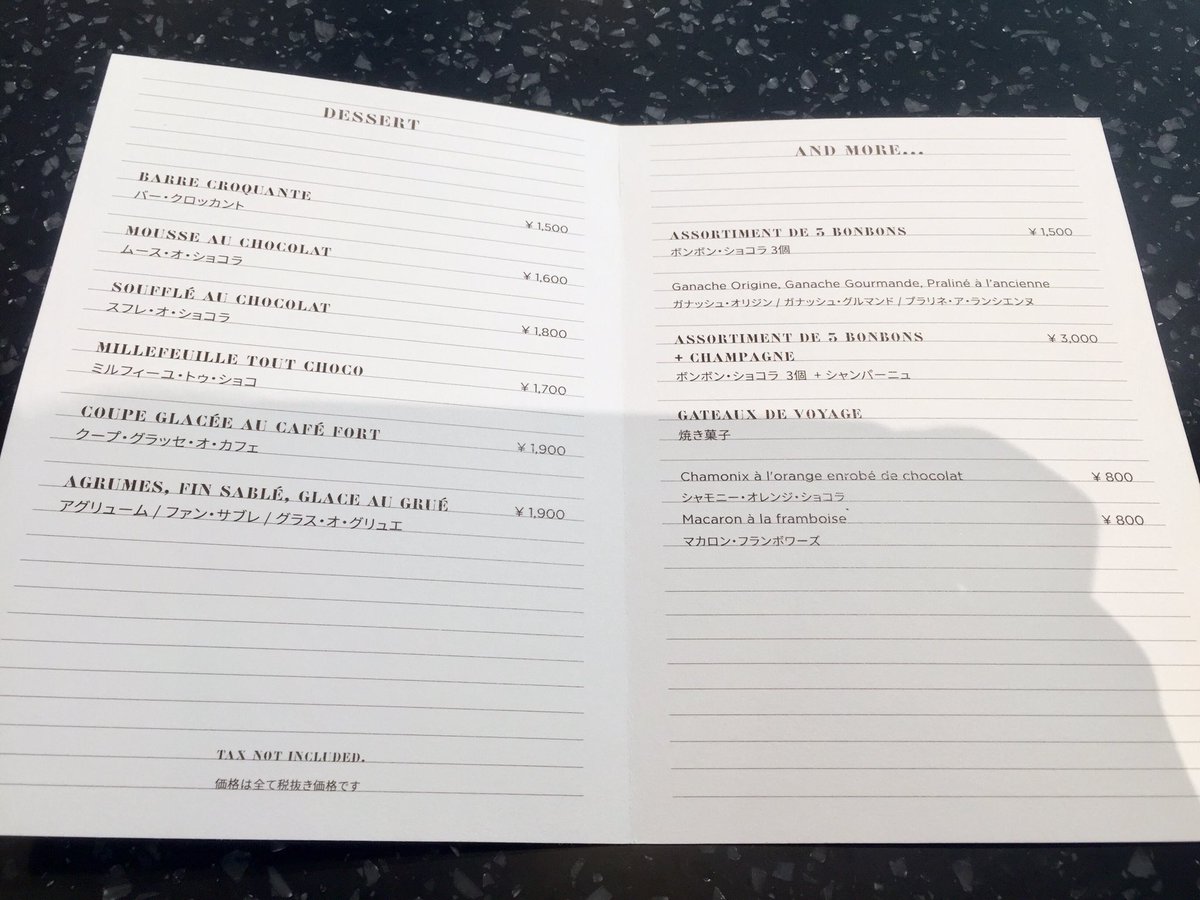 DESSERT
BARRE CROQUANTE
バー・クロッカント
¥ 1,500
MOUSSE AU CHOCOLAT
ムース・オ・ショコラ
¥ 1,600
SOUFFLÉ AU CHOCOLAT
スフレ・オ・ショコラ
¥ 1,800
MILLEFEUILLE TOUT CHOCO
ミルフィーユ・トゥ・ショコ
¥ 1,700
COUPE GLACÉE AU CAFÉ FORT
クープ・グラッセ・オ・カフェ
¥ 1,900
AGRUMES, FIN SABLÉ, GLACE AU GRUÉ
アグリューム / ファン・サブレ / グラス・オ・グリュエ
¥ 1,900
TAX NOT INCLUDED.
価格は全て税抜き価格です
AND MORE...
ASSORTIMENT DE 3 BONBONS ¥ 1,500
ボンボン・ショコラ 3個
Ganache Origine, Ganache Gourmande, Praliné à l'ancienne
ガナッシュ・オリジン / ガナッシュ・グルマンド / プラリネ・ア・ランシエンヌ
ASSORTIMENT DE 3 BONBONS ¥ 3,000
+ CHAMPAGNE
ボンボン・ショコラ 3個 + シャンパーニュ
GATEAUX DE VOYAGE
焼き菓子
Chamonix à l'orange enrobé de chocolat ¥ 800
シャモニー・オレンジ・ショコラ
Macaron à la framboise ¥ 800
マカロン・フランボワーズ